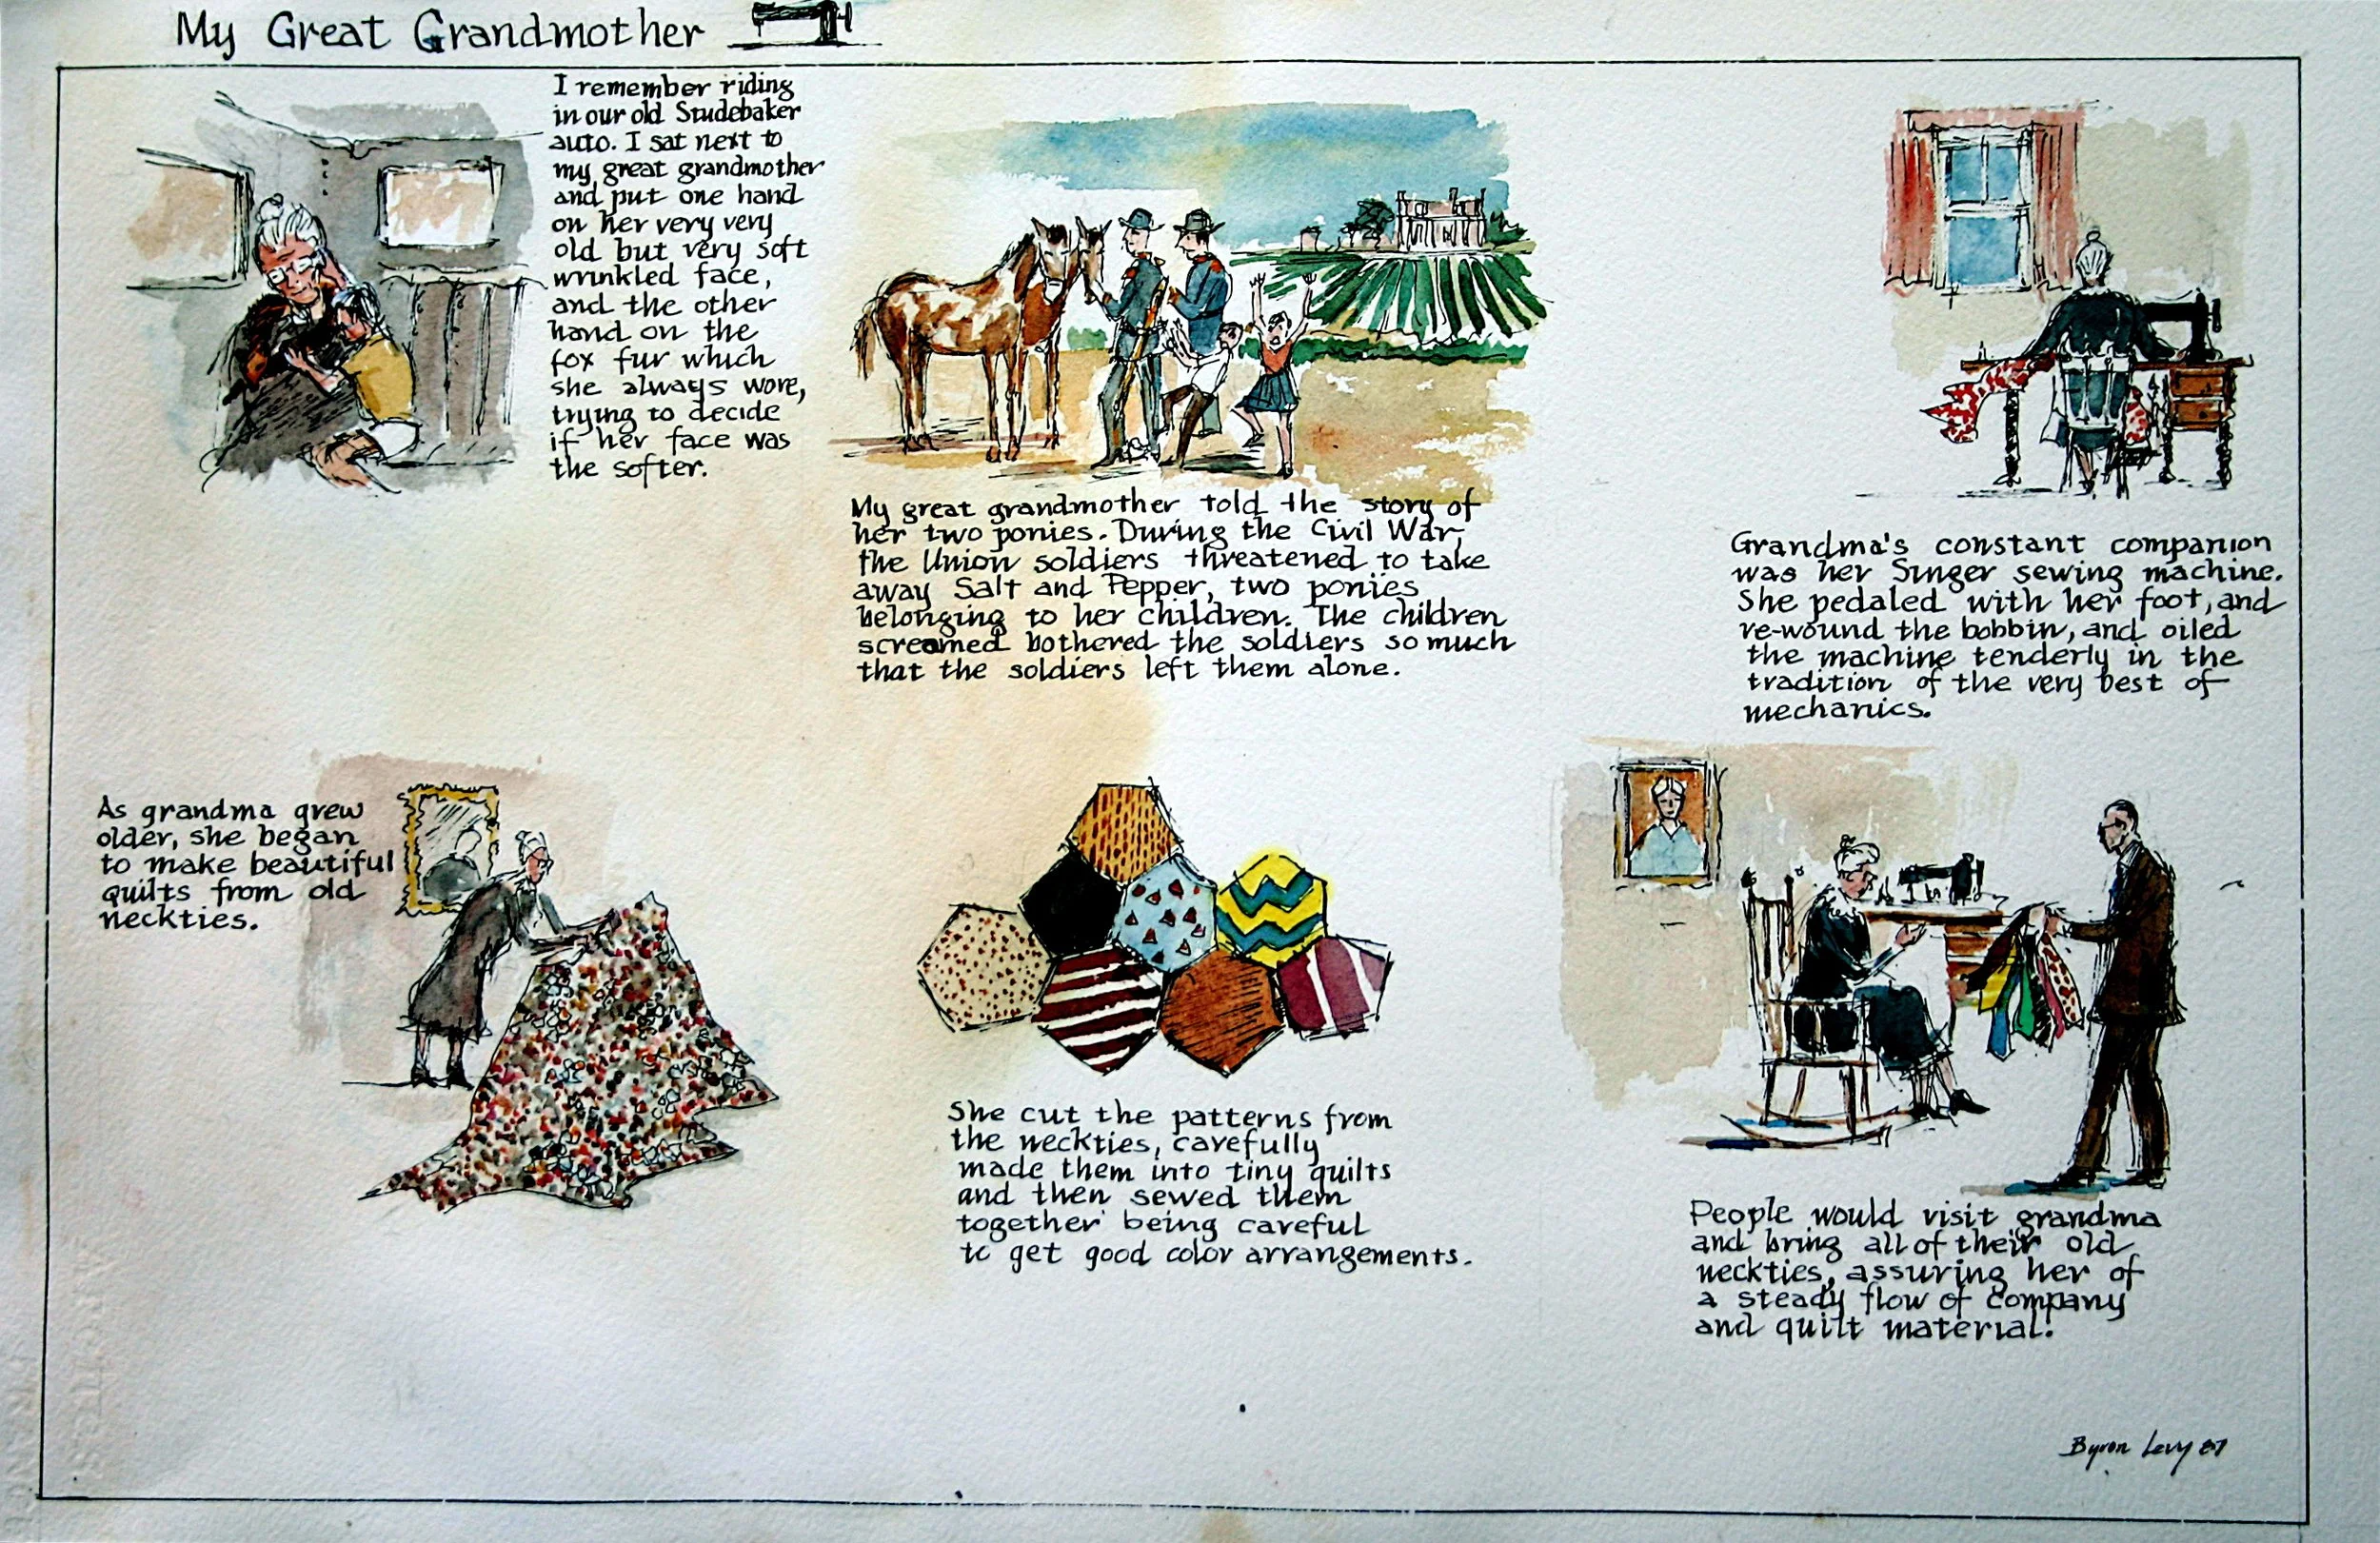 My Great Grandmother
I remember riding
in our old Studebaker
auto. I sat next to
my great grandmother
and put one hand
on her very very
old but very soft
wrinkled face,
and the other
hand on the
fox fur which
she always wore,
trying to decide
if her face was
the softer.
My great grandmother told the story of
her two ponies. During the Civil War,
the Union soldiers threatened to take
away Salt and Pepper, two ponies
belonging to her children. The children
screamed bothered the soldiers so much
that the soldiers left them alone.
Grandma's constant companion
was her Singer sewing machine.
She pedaled with her foot, and
re-wound the bobbin, and oiled
the machine tenderly in the
tradition of the very best of
mechanics.
As grandma grew
older, she began
to make beautiful
quilts from old
neckties.
She cut the patterns from
the neckties, carefully
made them into tiny quilts
and then sewed them
together being careful
to get good color arrangements.
People would visit grandma
and bring all of their old
neckties, assuring her of
a steady flow of company
and quilt material.
Byron Levy 87